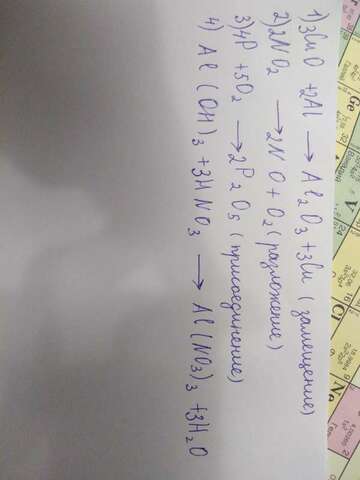 1) 3CuO + 2Al → Al₂O₃ + 3Cu (замещение)
2) 2NO₂ → 2NO + O₂ (разложение)
3) 4P + 5O₂ → 2P₂O₅ (присоединение)
4) Al(OH)₃ + 3HNO₃ → Al(NO₃)₃ + 3H₂O
Ge
V
Cl